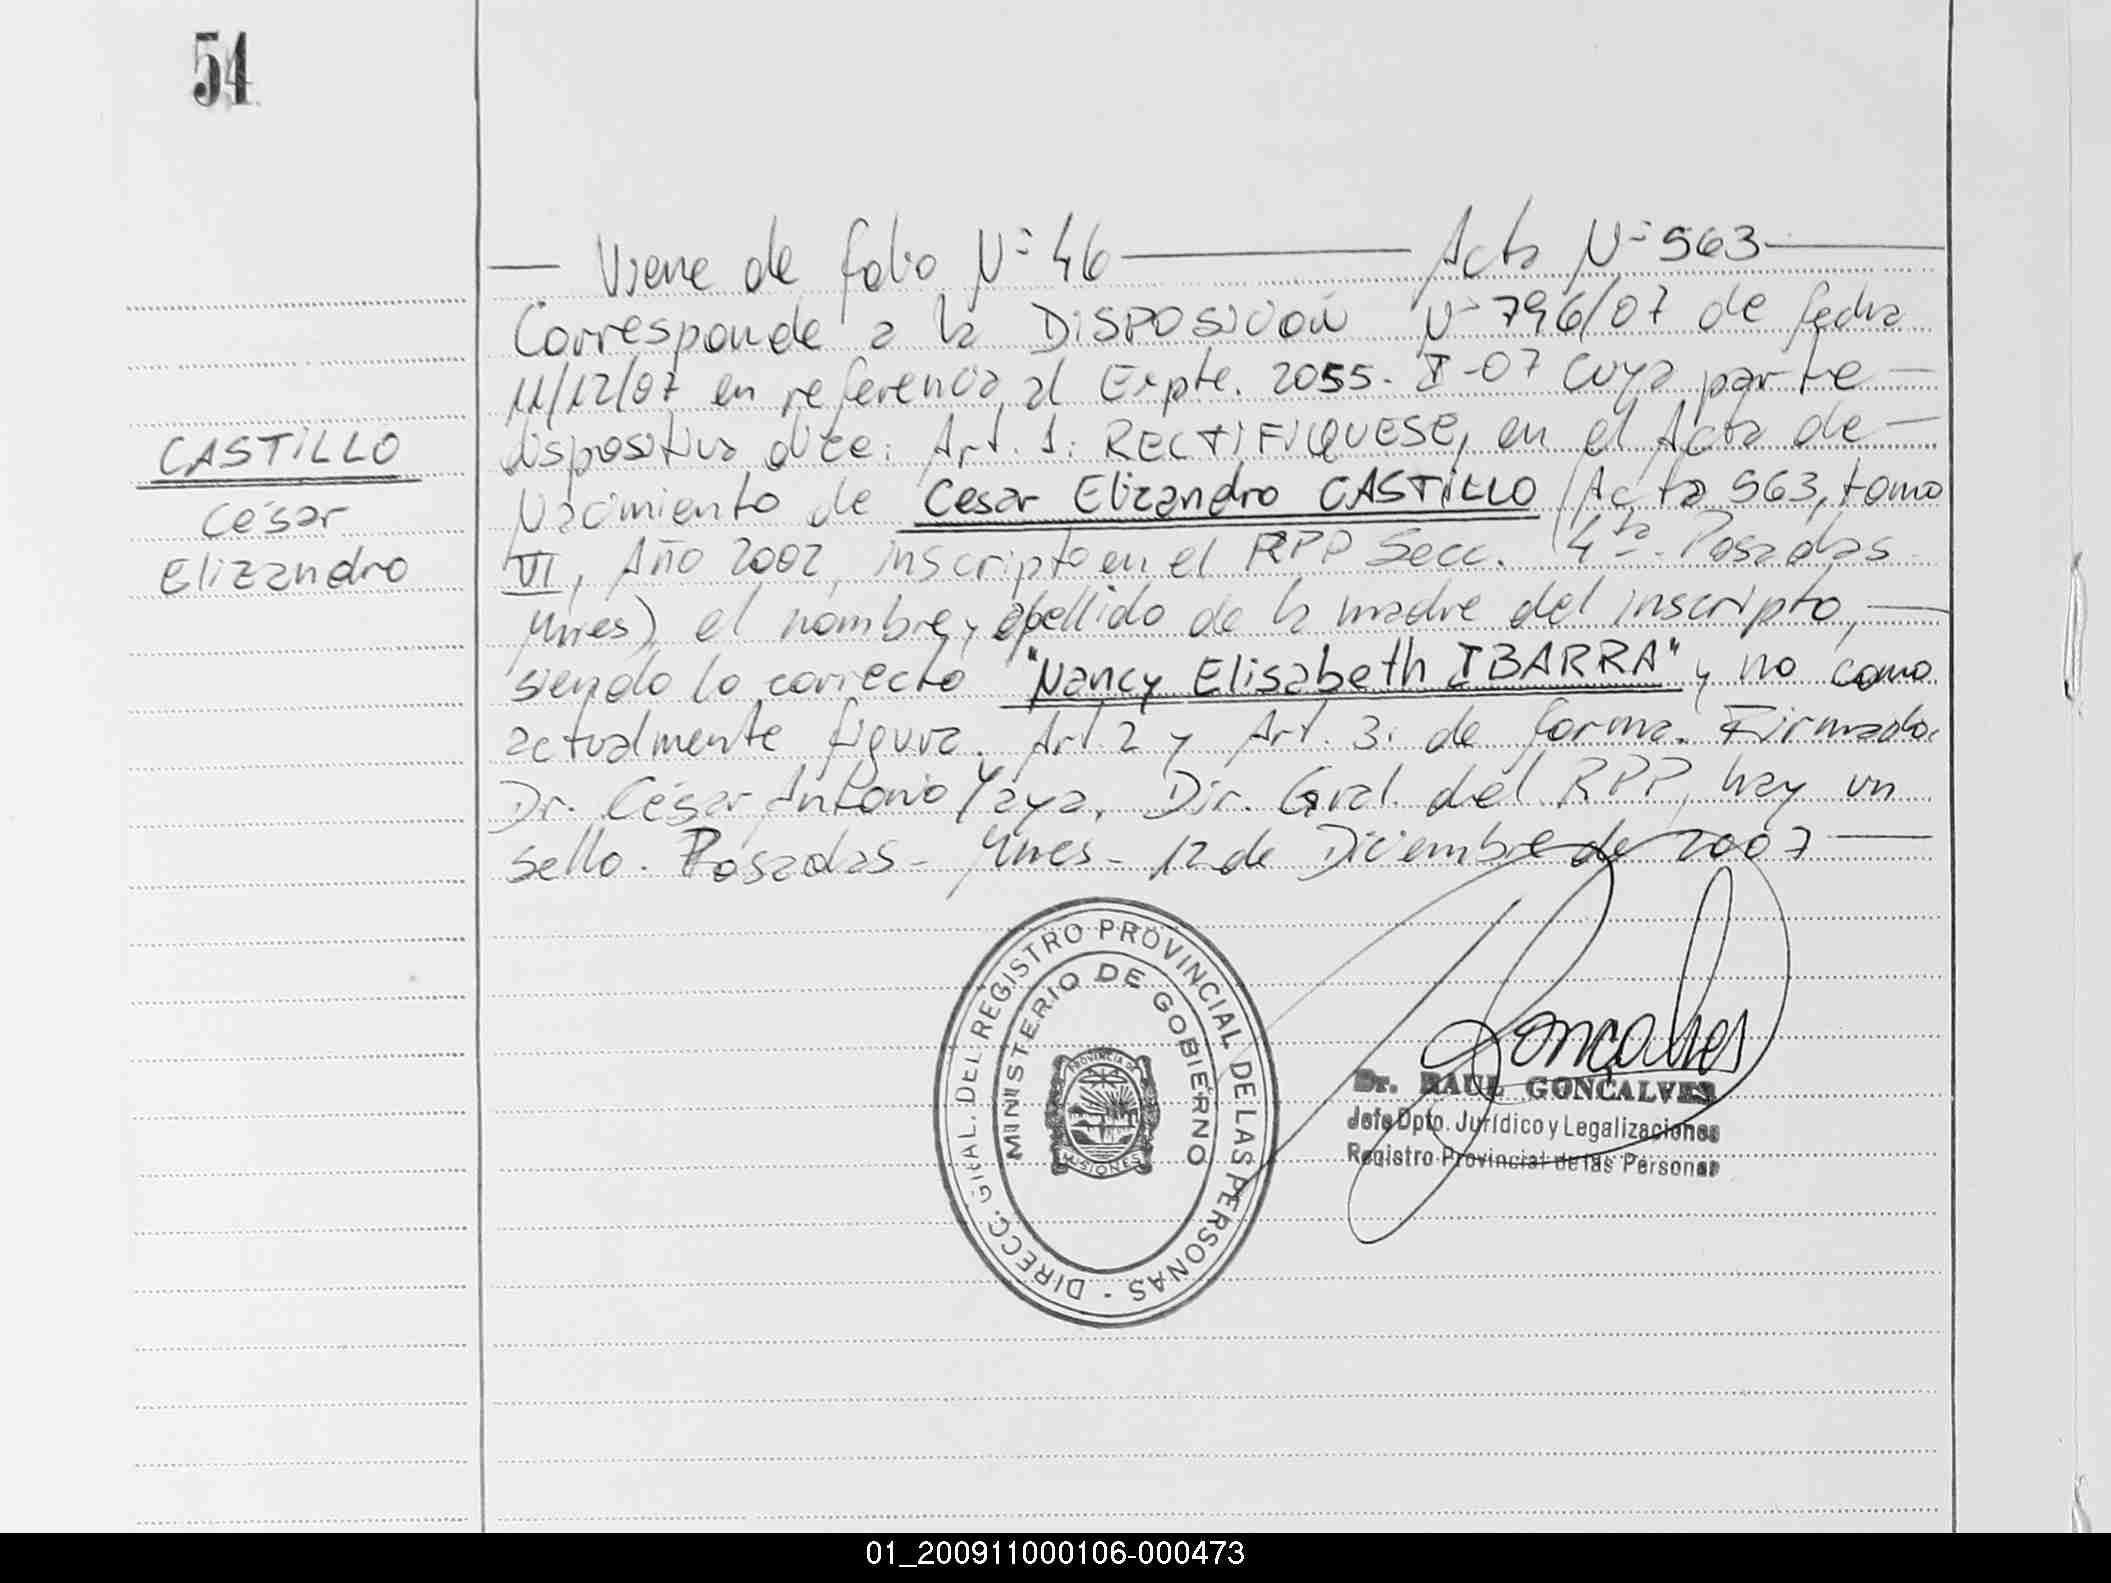 54
— Viene de folio Nº 46 — Acta Nº 563 —
Corresponde a la DISPOSICION Nº 796/07 de fecha
11/12/07 en referencia al Expte. 2055- I-07 cuya parte —
dispositiva dice: Art. 1: RECTIFIQUESE, en el Acta de —
Nacimiento de Cesar Elizandro CASTILLO (Acta 563, tomo
VI, Año 2002, inscripto en el RPP Secc. 4ta. Posadas
Mnes) el nombre y apellido de la madre del inscripto, —
siendo lo correcto "Nancy Elisabeth IBARRA" y no como
actualmente figura. Art. 2 y Art. 3: de forma. Firmado.
Dr. César Antonio Yaya, Dir. Gral. del RPP, hay un
sello. Posadas - Mnes - 12 de Diciembre de 2007 —
CASTILLO
César
Elizandro
DIRECC. GRAL. DEL REGISTRO PROVINCIAL DE LAS PERSONAS -
MINISTERIO DE GOBIERNO
PROVINCIA DE
MISIONES
Gonçalves
Dr. RAUL GONÇALVES
Jefe Dpto. Jurídico y Legalizaciones
Registro Provincial de las Personas
01_200911000106-000473